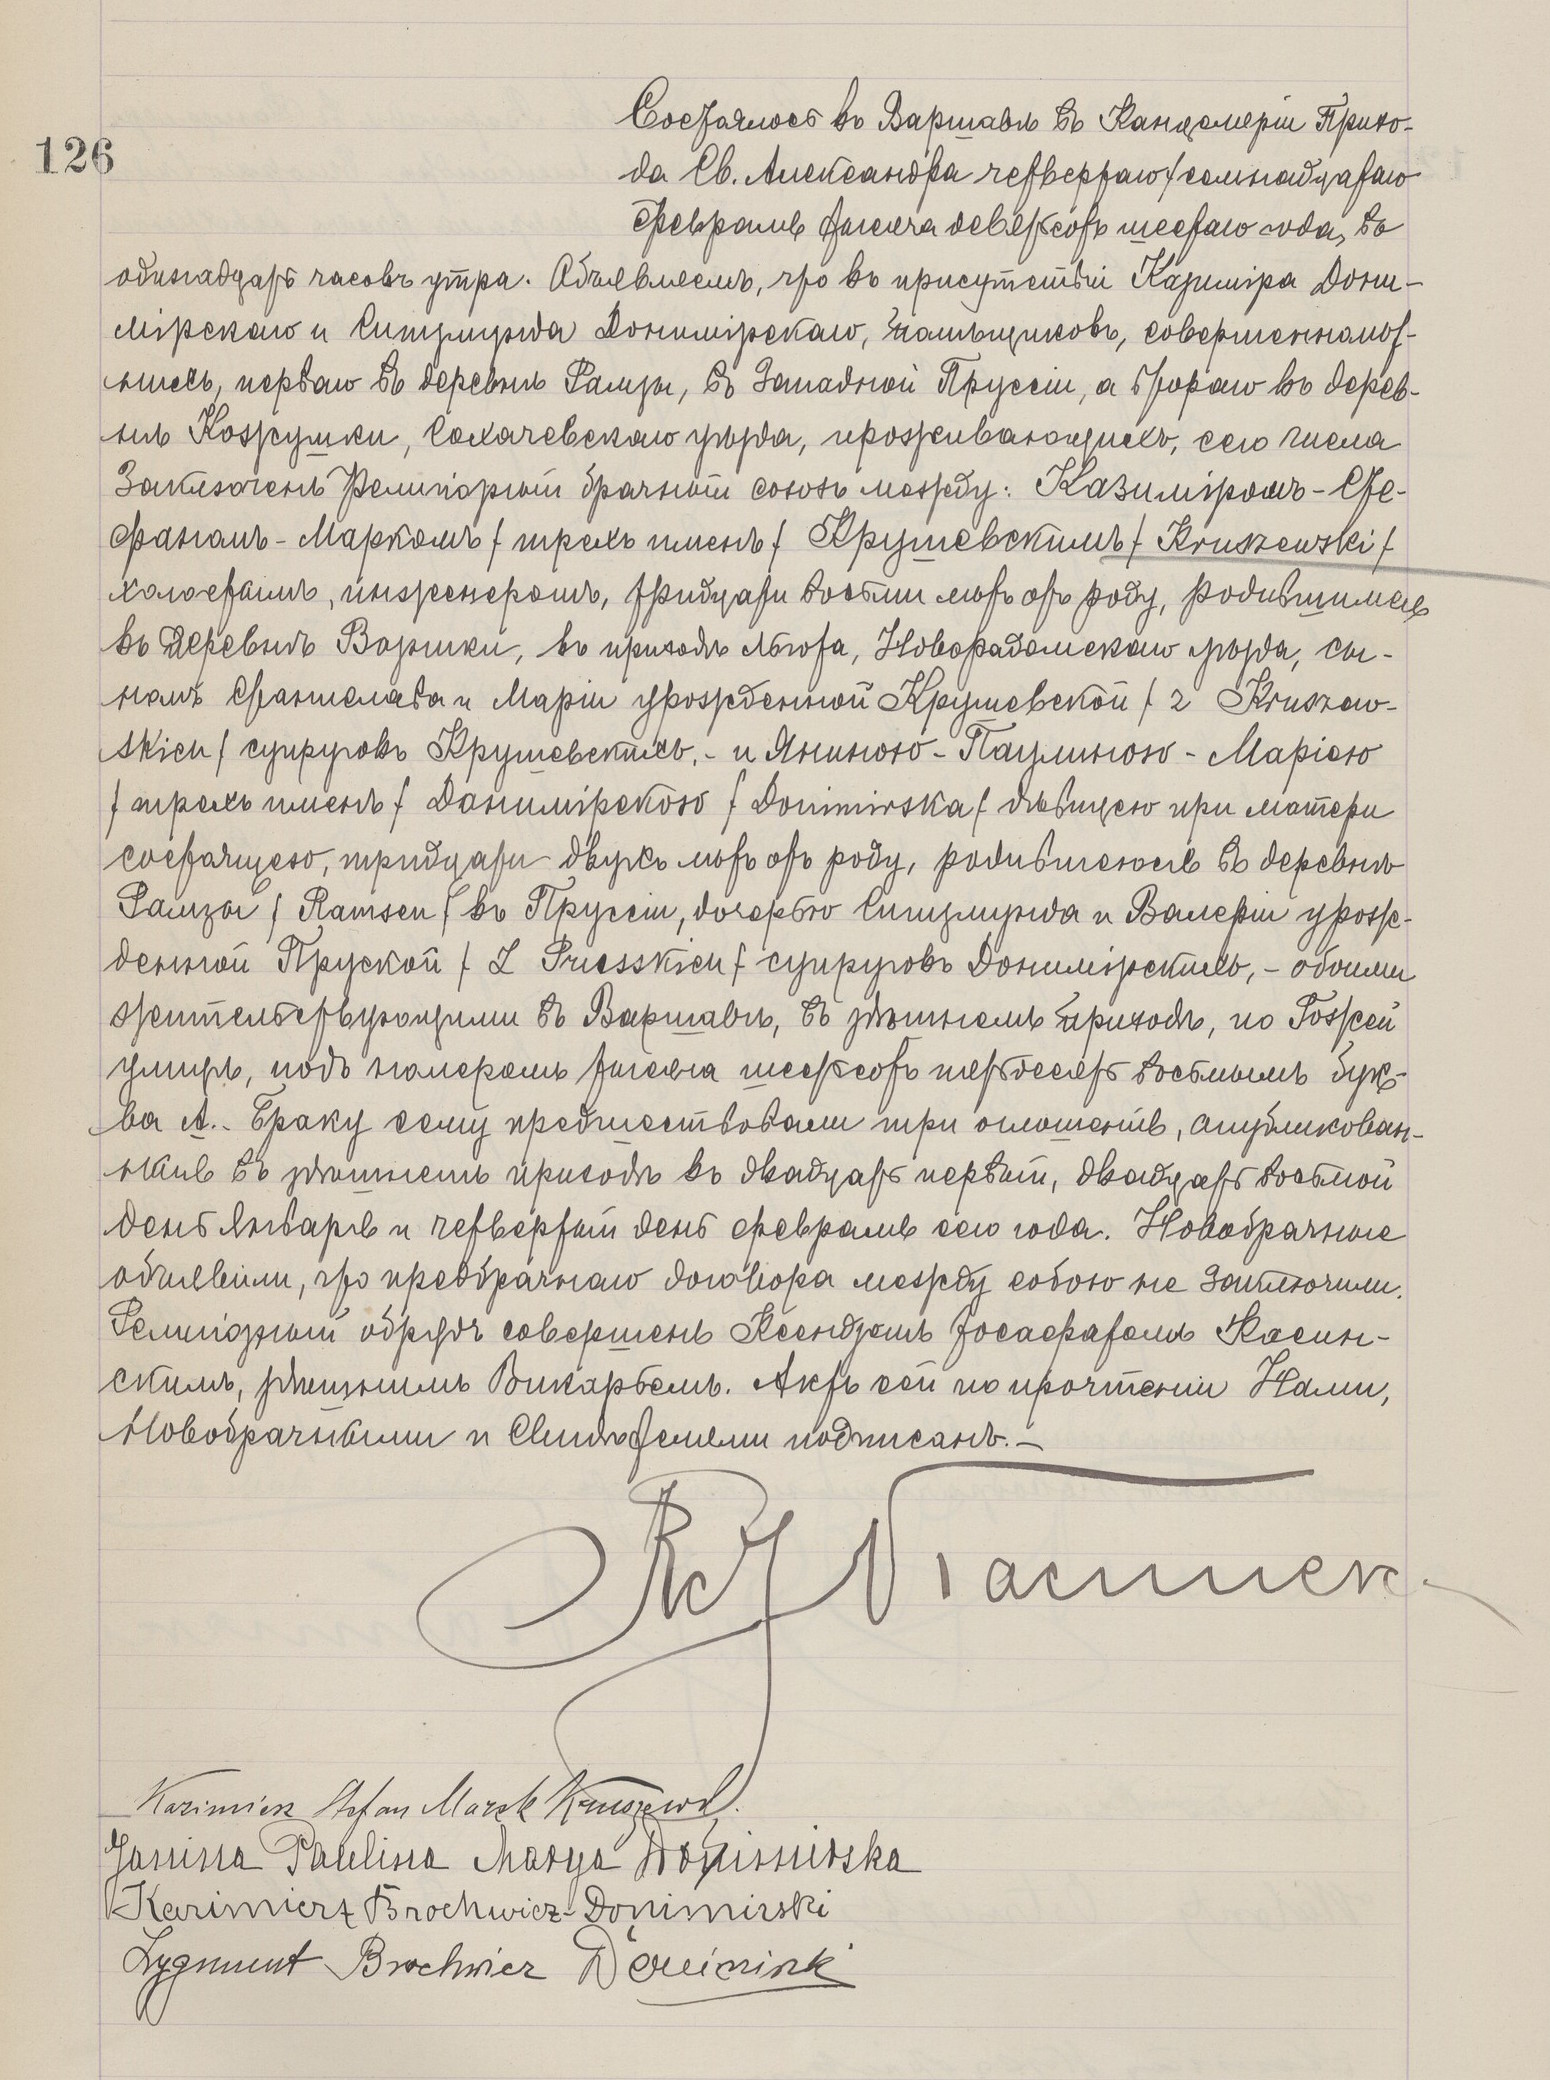 126
Состоялось въ Варшавѣ въ Канцеляріи Прихо-
да Св. Александра четвертаго / семнадцатаго
Февраля тысяча девятьсотъ шестаго года, въ
одинадцать часовъ утра. Объявляемъ, что въ присутствіи Казиміра Дони-
мірскаго и Сигизмунда Донимірскаго, помѣщиковъ, совершеннолѣт-
нихъ, перваго въ деревнѣ Рамзы, въ Западной Пруссіи, а втораго въ дерев-
нѣ Козрушки, Сохачевскаго уѣзда, проживающихъ, сего числа
Заключенъ Религіозный брачный союзъ между: Казиміромъ-Сте-
фаномъ-Маркомъ / трехъ именъ / Крушевскимъ / Kruszewski /
холостымъ, инженеромъ, тридцати восьми лѣтъ отъ роду, родившимся
въ деревнѣ Ворышки, въ приходѣ Льгота, Новорадомскаго уѣзда, сы-
номъ Станислава и Маріи урожденной Крушевской / z Kruszew-
skich / супруговъ Крушевскихъ, - и Яниною-Паулиною-Маріею
/ трехъ именъ / Донимірскою / Donimirska / дѣвицею при матери
состоящею, тридцати двухъ лѣтъ отъ роду, родившеюся въ деревнѣ
Рамзы / Ramsen / въ Пруссіи, дочерью Сигизмунда и Валеріи урож-
денной Пруской / z Prusskich / супруговъ Донимірскихъ, - обоими
жительствующими въ Варшавѣ, въ здѣшнемъ приходѣ, по Гожей
улицѣ, подъ номеромъ тысяча шестьсотъ пятьдесятъ восьмымъ бук-
ва А. - Браку сему предшествовали три оглашенія, опубликован-
ныя въ здѣшнемъ приходѣ въ двадцать первый, двадцать восьмой
день Января и четвертый день февраля сего года. Новобрачные
объявили, что предбрачнаго договора между собою не заключили.
Религіозный обрядъ совершенъ Ксендзомъ Іосафатомъ Касин-
скимъ, здѣшнимъ Викаріемъ. Актъ сей по прочтеніи Нами,
Новобрачными и Свидѣтелями подписанъ. -
Kazimierz Stefan Marek Kruszewski
Janina Paulina Marya Donimirska
Kazimierz Brochwicz-Donimirski
Zygmunt Brochwicz Donimirski